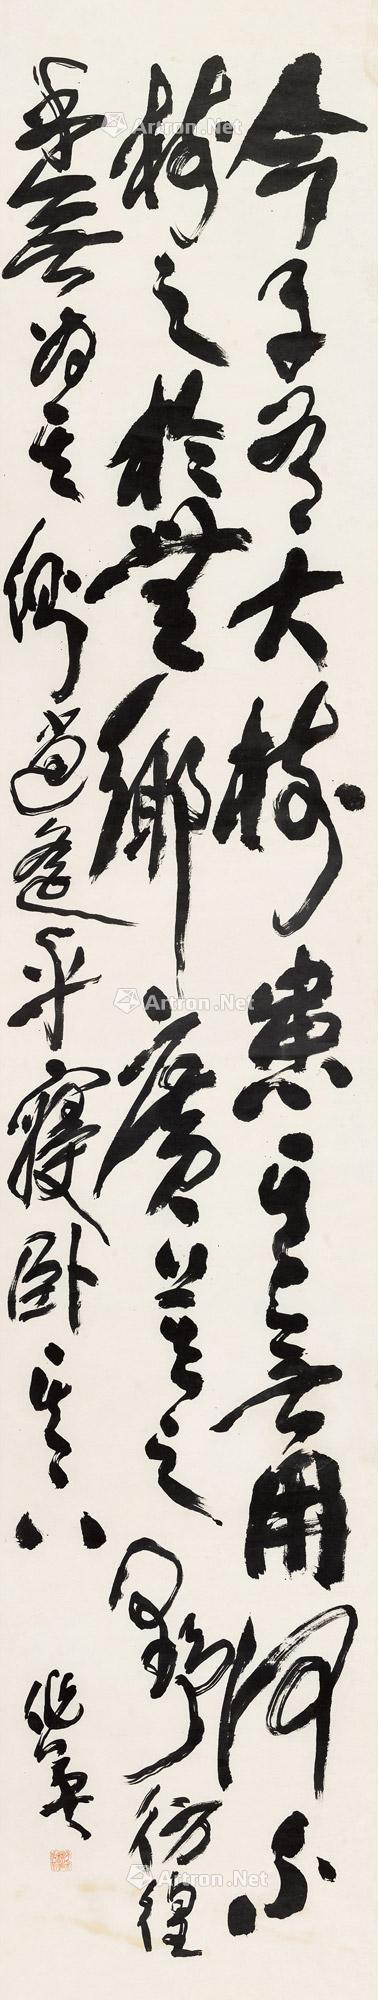 今子有大樹患其無用何不
樹之於無鄉廣莫之野彷徨
乎無為其側逍遙乎寢臥其下
Artron.Net
Artron.Net
Artron.Net
Artron.Net